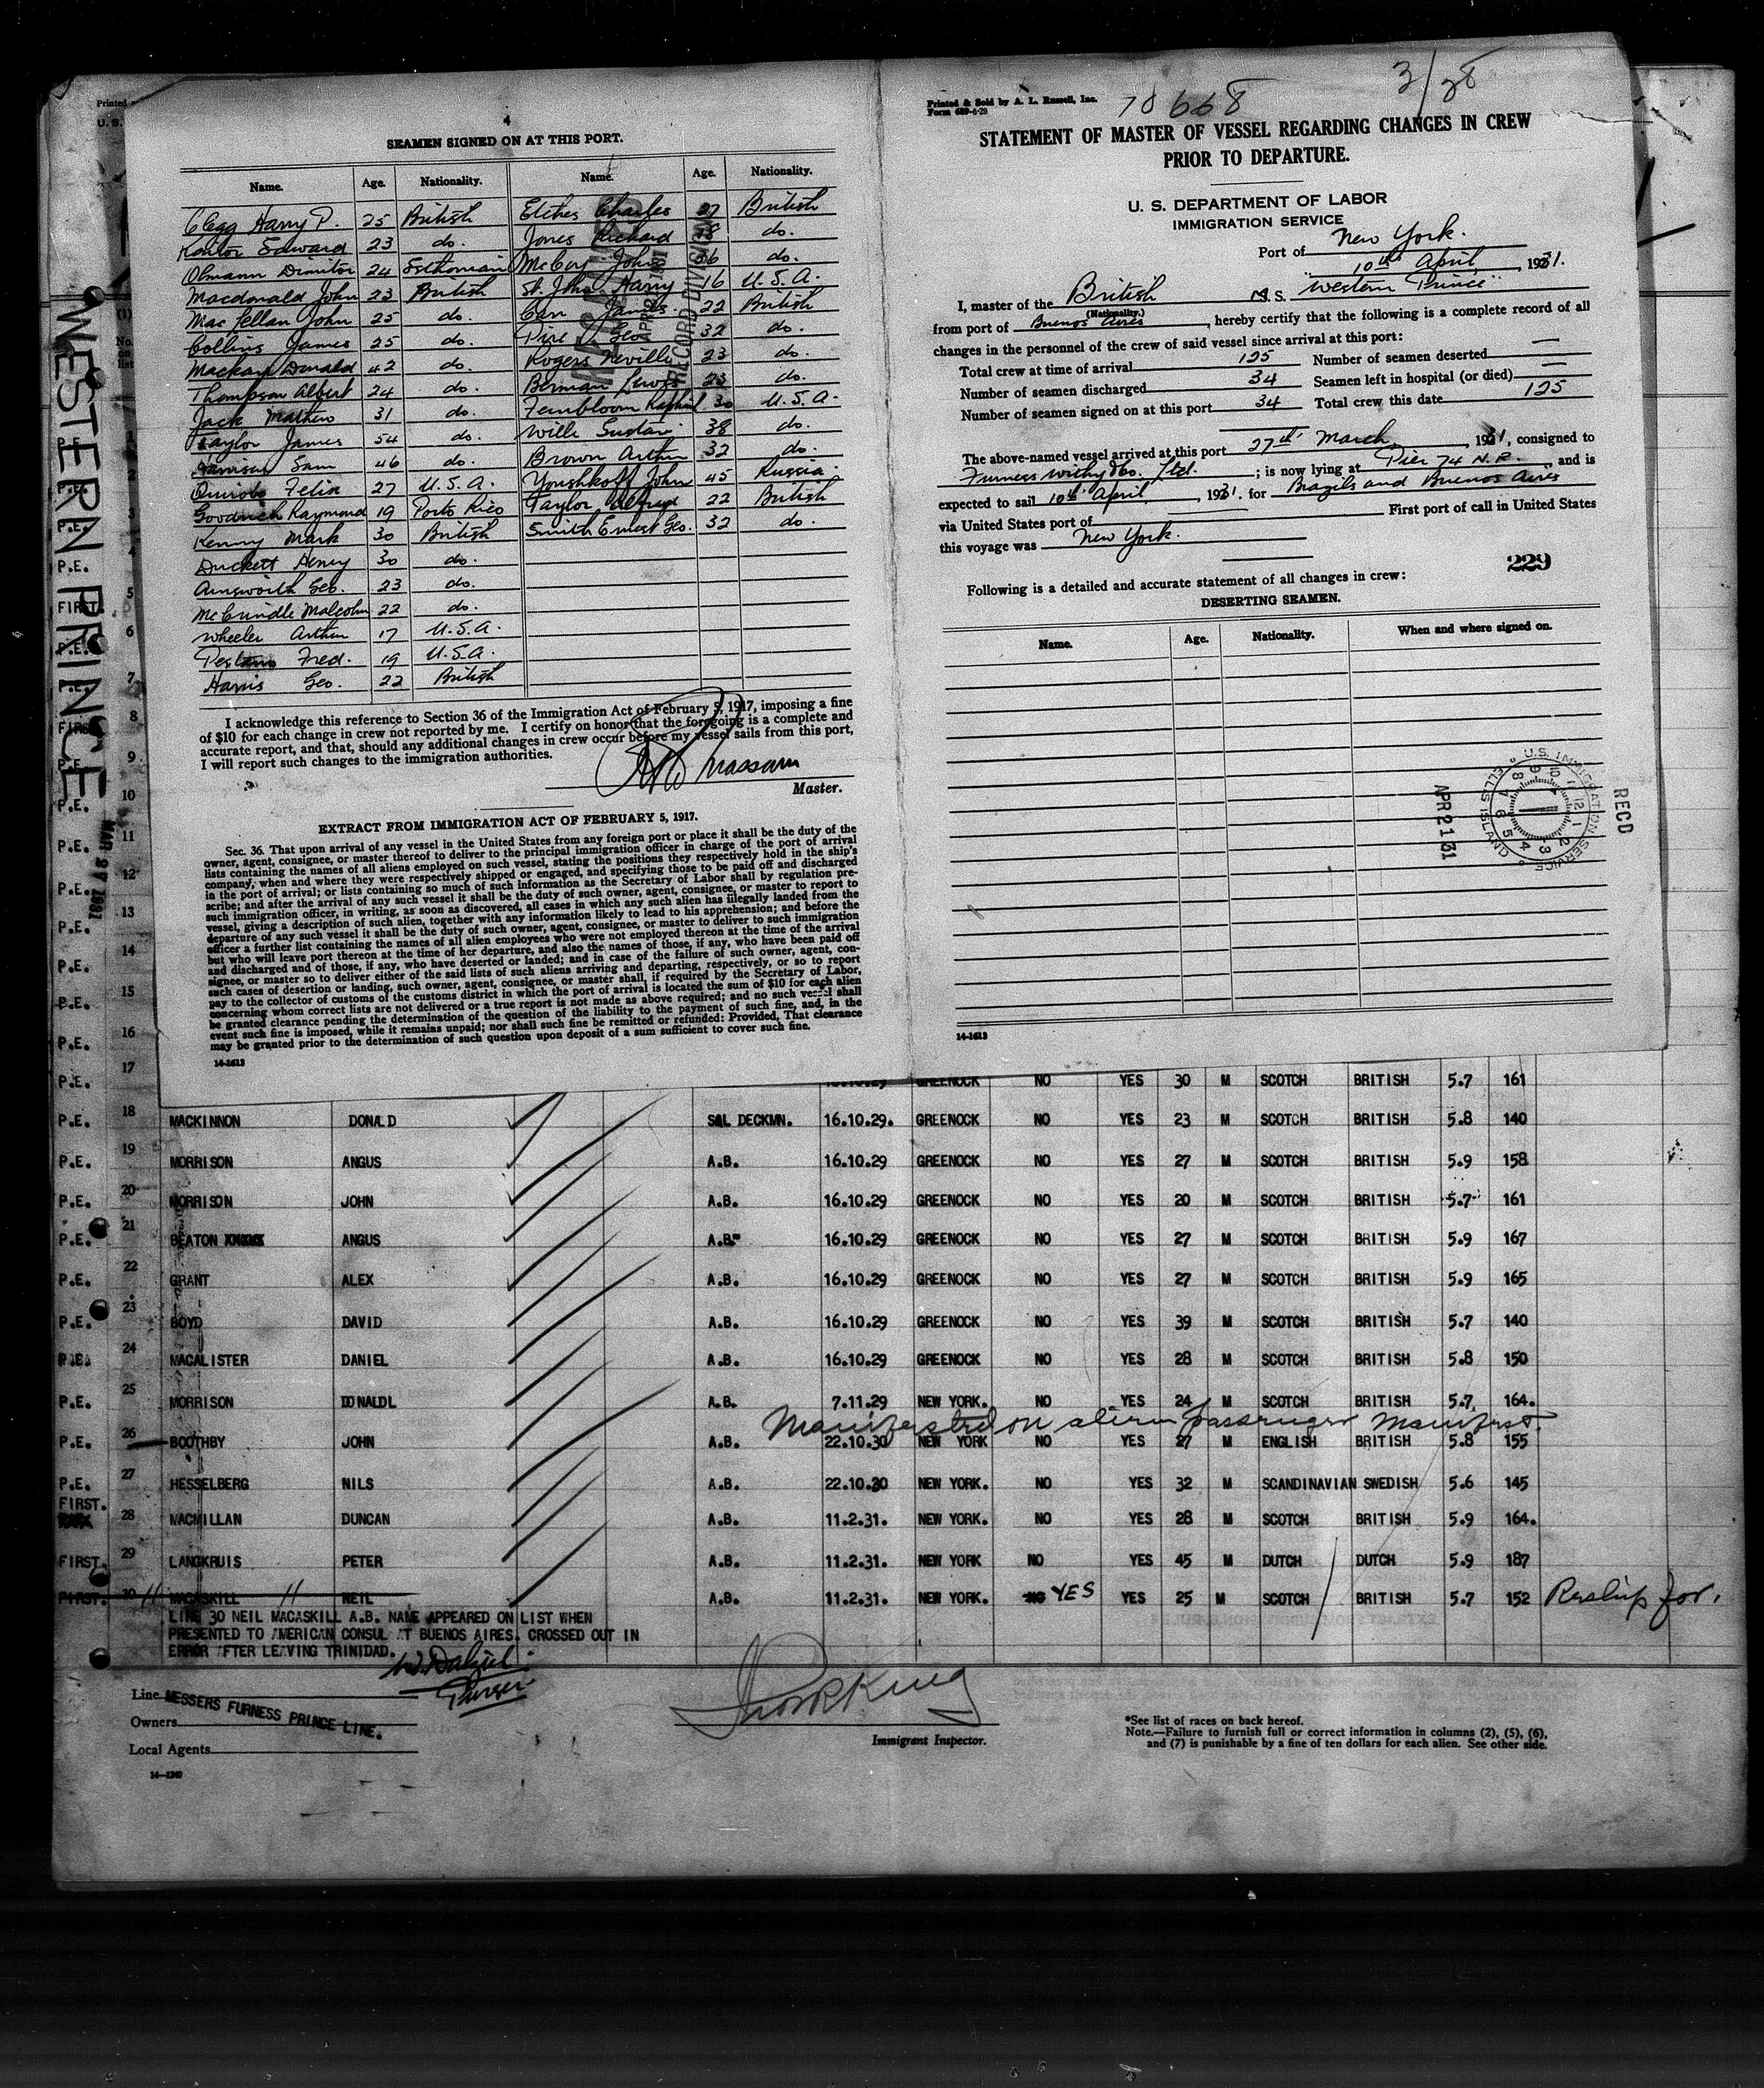 WESTERN PRINCE
MAR 27 1931
Printed
U. S.
4
SEAMEN SIGNED ON AT THIS PORT.
Name. Age. Nationality. Name. Age. Nationality.
Clegg Harry P. 25 British Etches Charles 27 British
Kantor Edward 23 do. Jones Richard do.
Olmann Dimitor 24 Esthonian McCoy John 36 do.
Macdonald John 23 British St. John Harry 16 U.S.A.
Mac fellan John 25 do. Carr James 22 British
Collins James 25 do. Geo 32 do.
Mackay Donald 42 do. Rogers Neville 23 do.
Thompson Albert 24 do. Berman Lewis 23 do.
Jack Mathew 31 do. 30 U.S.A.
Taylor James 54 do. Wille Gustav 38 do.
Harrison Sam 46 do. Brown Arthur 32 do.
Felix 27 U.S.A. Youshkoff John 45 Russia
Goodrich Raymond 19 Porto Rico Taylor Alfred 22 British
Kenny Mark 30 British Smith Ernest Geo. 32 do.
Duckett Henry 30 do.
Ainsworth Geo. 23 do.
McCrindle Malcolm 22 do.
Wheeler Arthur 17 U.S.A.
Fred. 19 U.S.A.
Harris Geo. 22 British
RECORD DIVISION
I acknowledge this reference to Section 36 of the Immigration Act of February 5, 1917, imposing a fine
of $10 for each change in crew not reported by me. I certify on honor that the foregoing is a complete and
accurate report, and that, should any additional changes in crew occur before my vessel sails from this port,
I will report such changes to the immigration authorities.
Massam
Master.
EXTRACT FROM IMMIGRATION ACT OF FEBRUARY 5, 1917.
Sec. 36. That upon arrival of any vessel in the United States from any foreign port or place it shall be the duty of the
owner, agent, consignee, or master thereof to deliver to the principal immigration officer in charge of the port of arrival
lists containing the names of all aliens employed on such vessel, stating the positions they respectively hold in the ship's
company, when and where they were respectively shipped or engaged, and specifying those to be paid off and discharged
in the port of arrival; or lists containing so much of such information as the Secretary of Labor shall by regulation pre-
scribe; and after the arrival of any such vessel it shall be the duty of such owner, agent, consignee, or master to report to
such immigration officer, in writing, as soon as discovered, all cases in which any such alien has illegally landed from the
vessel, giving a description of such alien, together with any information likely to lead to his apprehension; and before the
departure of any such vessel it shall be the duty of such owner, agent, consignee, or master to deliver to such immigration
officer a further list containing the names of all alien employees who were not employed thereon at the time of the arrival
but who will leave port thereon at the time of her departure, and also the names of those, if any, who have been paid off
and discharged and of those, if any, who have deserted or landed; and in case of the failure of such owner, agent, con-
signee, or master so to deliver either of the said lists of such aliens arriving and departing, respectively, or so to report
such cases of desertion or landing, such owner, agent, consignee, or master shall, if required by the Secretary of Labor,
pay to the collector of customs of the customs district in which the port of arrival is located the sum of $10 for each alien
concerning whom correct lists are not delivered or a true report is not made as above required; and no such vessel shall
be granted clearance pending the determination of the question of the liability to the payment of such fine, and, in the
event such fine is imposed, while it remains unpaid; nor shall such fine be remitted or refunded: Provided, That clearance
may be granted prior to the determination of such question upon deposit of a sum sufficient to cover such fine.
14-1613
3/28
Printed & Sold by A. L. Russell, Inc.
Form 689-6-29
70668
STATEMENT OF MASTER OF VESSEL REGARDING CHANGES IN CREW
PRIOR TO DEPARTURE.
U. S. DEPARTMENT OF LABOR
IMMIGRATION SERVICE
Port of New York.
10th April 1931.
I, master of the British M. S. "Western Prince"
(Nationality.)
from port of Buenos Aires, hereby certify that the following is a complete record of all
changes in the personnel of the crew of said vessel since arrival at this port:
Total crew at time of arrival 125 Number of seamen deserted —
Number of seamen discharged 34 Seamen left in hospital (or died) —
Number of seamen signed on at this port 34 Total crew this date 125
The above-named vessel arrived at this port 27th March, 1931, consigned to
Furness Withy & Co. Ltd.; is now lying at Pier 74 N.R. and is
expected to sail 10th April, 1931. for Brazils and Buenos Aires
via United States port of First port of call in United States
this voyage was New York.
229
Following is a detailed and accurate statement of all changes in crew:
DESERTING SEAMEN.
Name. Age. Nationality. When and where signed on.
RECD
U.S. IMMIGRATION SERVICE ELLIS ISLAND
APR 21 31
14-1613
P.E. 17 GREENOCK NO YES 30 M SCOTCH BRITISH 5.7 161
P.E. 18 MACKINNON DONALD S&L DECKMN. 16.10.29. GREENOCK NO YES 23 M SCOTCH BRITISH 5.8 140
P.E. 19 MORRISON ANGUS A.B. 16.10.29 GREENOCK NO YES 27 M SCOTCH BRITISH 5.9 158
P.E. 20 MORRISON JOHN A.B. 16.10.29 GREENOCK NO YES 20 M SCOTCH BRITISH 5.7 161
P.E. 21 BEATON ANGUS A.B. 16.10.29 GREENOCK NO YES 27 M SCOTCH BRITISH 5.9 167
P.E. 22 GRANT ALEX A.B. 16.10.29 GREENOCK NO YES 27 M SCOTCH BRITISH 5.9 165
P.E. 23 BOYD DAVID A.B. 16.10.29 GREENOCK NO YES 39 M SCOTCH BRITISH 5.7 140
P.E. 24 MACALISTER DANIEL A.B. 16.10.29 GREENOCK NO YES 28 M SCOTCH BRITISH 5.8 150
P.E. 25 MORRISON DONALDL A.B. 7.11.29 NEW YORK. NO YES 24 M SCOTCH BRITISH 5.7 164.
Manifested on alien passenger Manifest.
P.E. 26 BOOTHBY JOHN A.B. 22.10.30 NEW YORK NO YES 27 M ENGLISH BRITISH 5.8 155
P.E. 27 HESSELBERG NILS A.B. 22.10.30 NEW YORK. NO YES 32 M SCANDINAVIAN SWEDISH 5.6 145
FIRST. 28 MACMILLAN DUNCAN A.B. 11.2.31. NEW YORK. NO YES 28 M SCOTCH BRITISH 5.9 164.
FIRST. 29 LANGKRUIS PETER A.B. 11.2.31. NEW YORK NO YES 45 M DUTCH DUTCH 5.9 187
FIRST. 30 MACASKILL NEIL A.B. 11.2.31. NEW YORK. NO YES YES 25 M SCOTCH BRITISH 5.7 152 Reship for.
LINE 30 NEIL MACASKILL A.B. NAME APPEARED ON LIST WHEN
PRESENTED TO AMERICAN CONSUL AT BUENOS AIRES. CROSSED OUT IN
ERROR AFTER LEAVING TRINIDAD.
W. Dalziel
Purser
Line MESSERS FURNESS PRINCE LINE.
Owners
Local Agents
14-1240
Immigrant Inspector.
*See list of races on back hereof.
Note.—Failure to furnish full or correct information in columns (2), (5), (6),
and (7) is punishable by a fine of ten dollars for each alien. See other side.